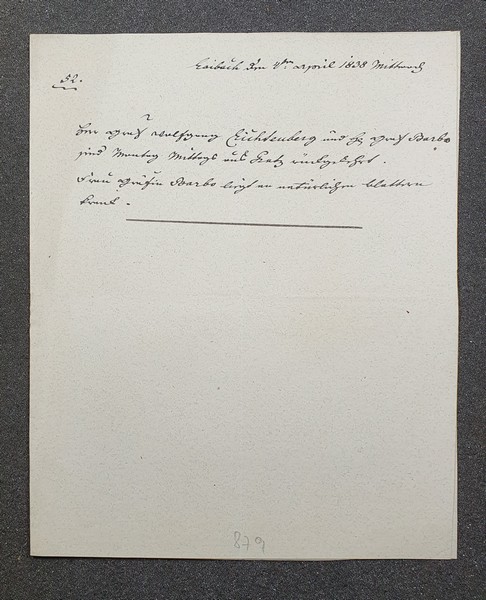 Laibach den 4ten April 1838 Mittwoch
52.
Herr Graf Wolfgang Lichtenberg und H. Graf Barbo
sind Montag Mittags aus Gratz rückgekehrt.
Frau Gräfin Barbo liegt an natürlichen Blattern
krank.
879